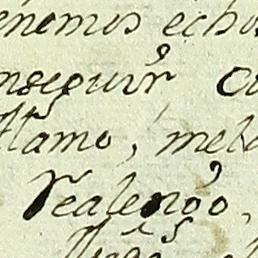 enemos echo
nseguir, co
llamo, mela
Realengo,